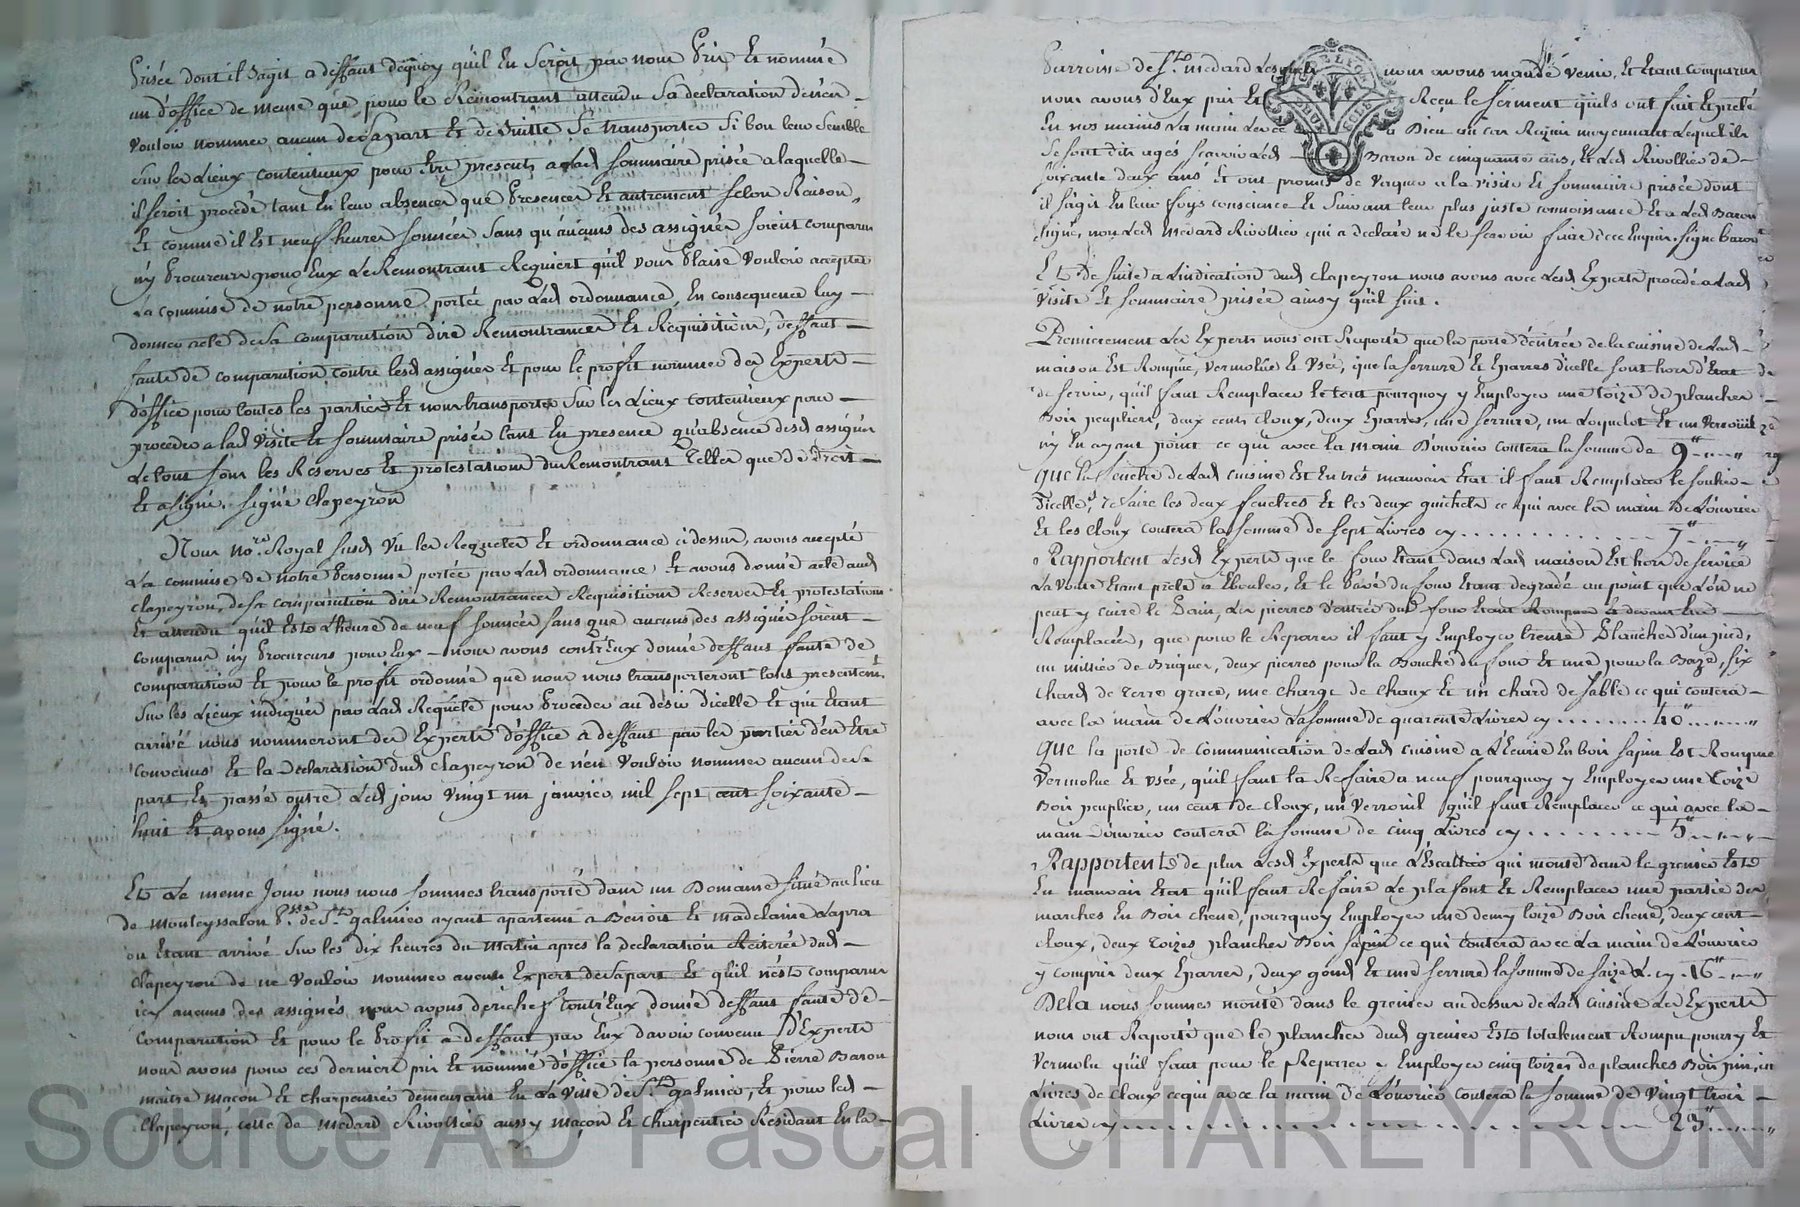 prisée dont il sagit a deffaut dequoy quil En seroit par nous pris Et nommé
un d'office de meme que pour le Remontrant attendu sa declaration de n'en
vouloir nommer aucun de sa part Et de suitte se transporter si bon leur semble
sur les Lieux contentieux pour Etre presents a lad sommaire prisée a laquelle
il seroit procedé tant En leur absence que presence Et autrement selon Raison,
Et comme il Est neuf heures sonnées sans qu'aucuns des assignés soient comparus
ny procureurs pour Eux Le Remontrant Requiert qu'il vous plaise vouloir accepter
La commise de notre personne portée par lad ordonnance, En consequence luy
donner acte de sa comparution dire Remontrances Et Requisitions, deffaut
faute de comparution contre lesd assignés Et pour le profit nommer des Experts
d'office pour toutes les parties Et nous transporter sur les Lieux contentieux pour
proceder a lad visite Et sommaire prisée tant En presence qu'absence desd assignés
Le tout sous les Reserves Et protestations du Remontrant Telles que de Droit
Et a signé. signé Clapeyron
Nous No.re Royal susd Vu les Requete Et ordonnance ci dessus, avons accepté
La commise de notre personne portée par lad ordonnance Et avons donné acte aud
Clapeyron, de sa comparution dire Remontrances Requisitions Reserves Et protestations
Et attendu qu'il Est L'heure de neuf sonnées sans que aucuns des assignés soient
comparus ny procureurs pour Eux nous avons contr'Eux donné deffaut faute de
comparution Et pour le profit ordonné que nous nous transporterons tout presentemt
sur les Lieux indiqués par Lad Requete pour proceder au desir d'icelle Et qu'Etant
arrivé nous nommerons des Experts d'office a deffaut par les parties d'en Etre
convenus Et la Declaration dud Clapeyron de n'en vouloir nommer aucun de sa
part, Et passé outre Led jour vingt un janvier mil sept cent soixante
huit Et avons signé.
Et Le meme jour nous nous sommes transporté dans un Domaine situé au lieu
de Monteyssalon p.sse de S.t galmier ayant apartenu a Benoit Et madelaine Lapra
ou Etant arrivé sur les dix heures du Matin apres la declaration Reiterée dud
Clapeyron de ne vouloir nommer aucun Expert de sa part Et qu'il n'Est comparu
icy aucuns des assignés, nous avons derichef contr'Eux donné deffaut faute de
Comparution Et pour le profit a deffaut par Eux d'avoir convenu d'Experts
nous avons pour ces derniers pris et nommé d'office la personne de Pierre Baron
maitre maçon Et charpentier demeurant En La Ville de S.t galmier, Et pour led
Clapeyron, celle de Medard Rivollier aussy maçon Et Charpentier Residant En la
Parroisse de S.t medard Lesquels nous avons mandé venir, Et Etant comparus
nous avons d'Eux pris Et Receu le serment qu'ils ont fait Et preté
En nos mains La main Levée a Dieu au cas Requis moyennant Lequel ils
se sont dits agés scavoir Led Baron de cinquante ans, Et Led Rivollier de
soixante deux ans Et ont promis de vaquer a la visite Et sommaire prisée dont
il s'agit En leur foys conscience Et suivant leur plus juste connoissance Et a Led Baron
signé, non Led Medard Rivollier qui a declaré ne le scavoir faire signé baron
Et de suite a L'indication dud Clapeyron nous avons avec Lesd Experts procédé a Lad
Visite Et sommaire prisée ainsy qu'il suit.
Premierement Les Experts nous ont Raporté que la porte d'entrée de la cuisine de Lad
maison Est Rompue, Vermolue Et Usée, que la serrure Et Eparres d'icelle sont hors d'Etat
de servir, qu'il faut Remplacer le tout pourquoy y Employer une toize de plancher
Bois peuplier, deux cens cloux, deux Eparres, une serrure, un Loquelot Et un Verrouil
ny En ayant point ce qui avec la main D'ouvrier coutera la somme de 9"
Que la fenetre de Lad cuisine Est En tres mauvais Etat il faut Remplacer le
d'icelle, refaire les deux fenetres Et les deux guichets ce qui avec la main de L'ouvrier
Et les Cloux coutera la somme de sept Livres cy 7"
Rapportent Lesd Experts que le four Etant dans Lad maison Est hors de service
La voute Etant prete a Ebouler, Et le pavé du four Etant degradé au point que L'on ne
peut y cuire le pain, Les pierres d'entrée dud four Etant Rompues Et devant Etre
Remplacées, que pour le Reparer il faut y Employer trente planches d'un pied,
un millier de Briques, deux pierres pour la Bouche du four Et une pour la Baze, six
chards de Terre grace, une charge de Chaux Et un chard de sable ce qui coutera
avec la main de L'ouvrier La somme de quarente Livres cy 40"
Que la porte de communication de Lad cuisine a L'Ecurie En bois sapin Est Rompue
Vermolue Et Usée, qu'il faut la Refaire a neuf pourquoy y Employer une toize
Bois peuplier, un cent de Cloux, un Verrouil qu'il faut Remplacer ce qui avec la
main D'ouvrier coutera la somme de cinq Livres cy 5"
Rapportent de plus Lesd Experts que L'Escallier qui monte dans le grenier Est
En mauvais Etat qu'il faut Refaire Le plafont Et Remplacer une partie des
marches En Bois chene, pourquoy Employer une demy toize Bois chene, deux cent
cloux, deux Toizes plancher Bois sapin ce qui coutera avec La main de L'ouvrier
y compris deux Eparres, deux gonds Et une serrure la somme de saize L. cy 16"
De la nous sommes monté dans le grenier au dessus de Lad cuisine Les Experts
nous ont Raporté que le plancher dud grenier Est totalement Rompu pourry Et
Vermolu qu'il faut pour le Reparer y Employer cinq toizes de planches Bois pin, six
Livres de Cloux ce qui avec la main de L'ouvrier coutera la somme de Vingt trois
Livres cy 23"
Source AD Pascal CHAREYRON